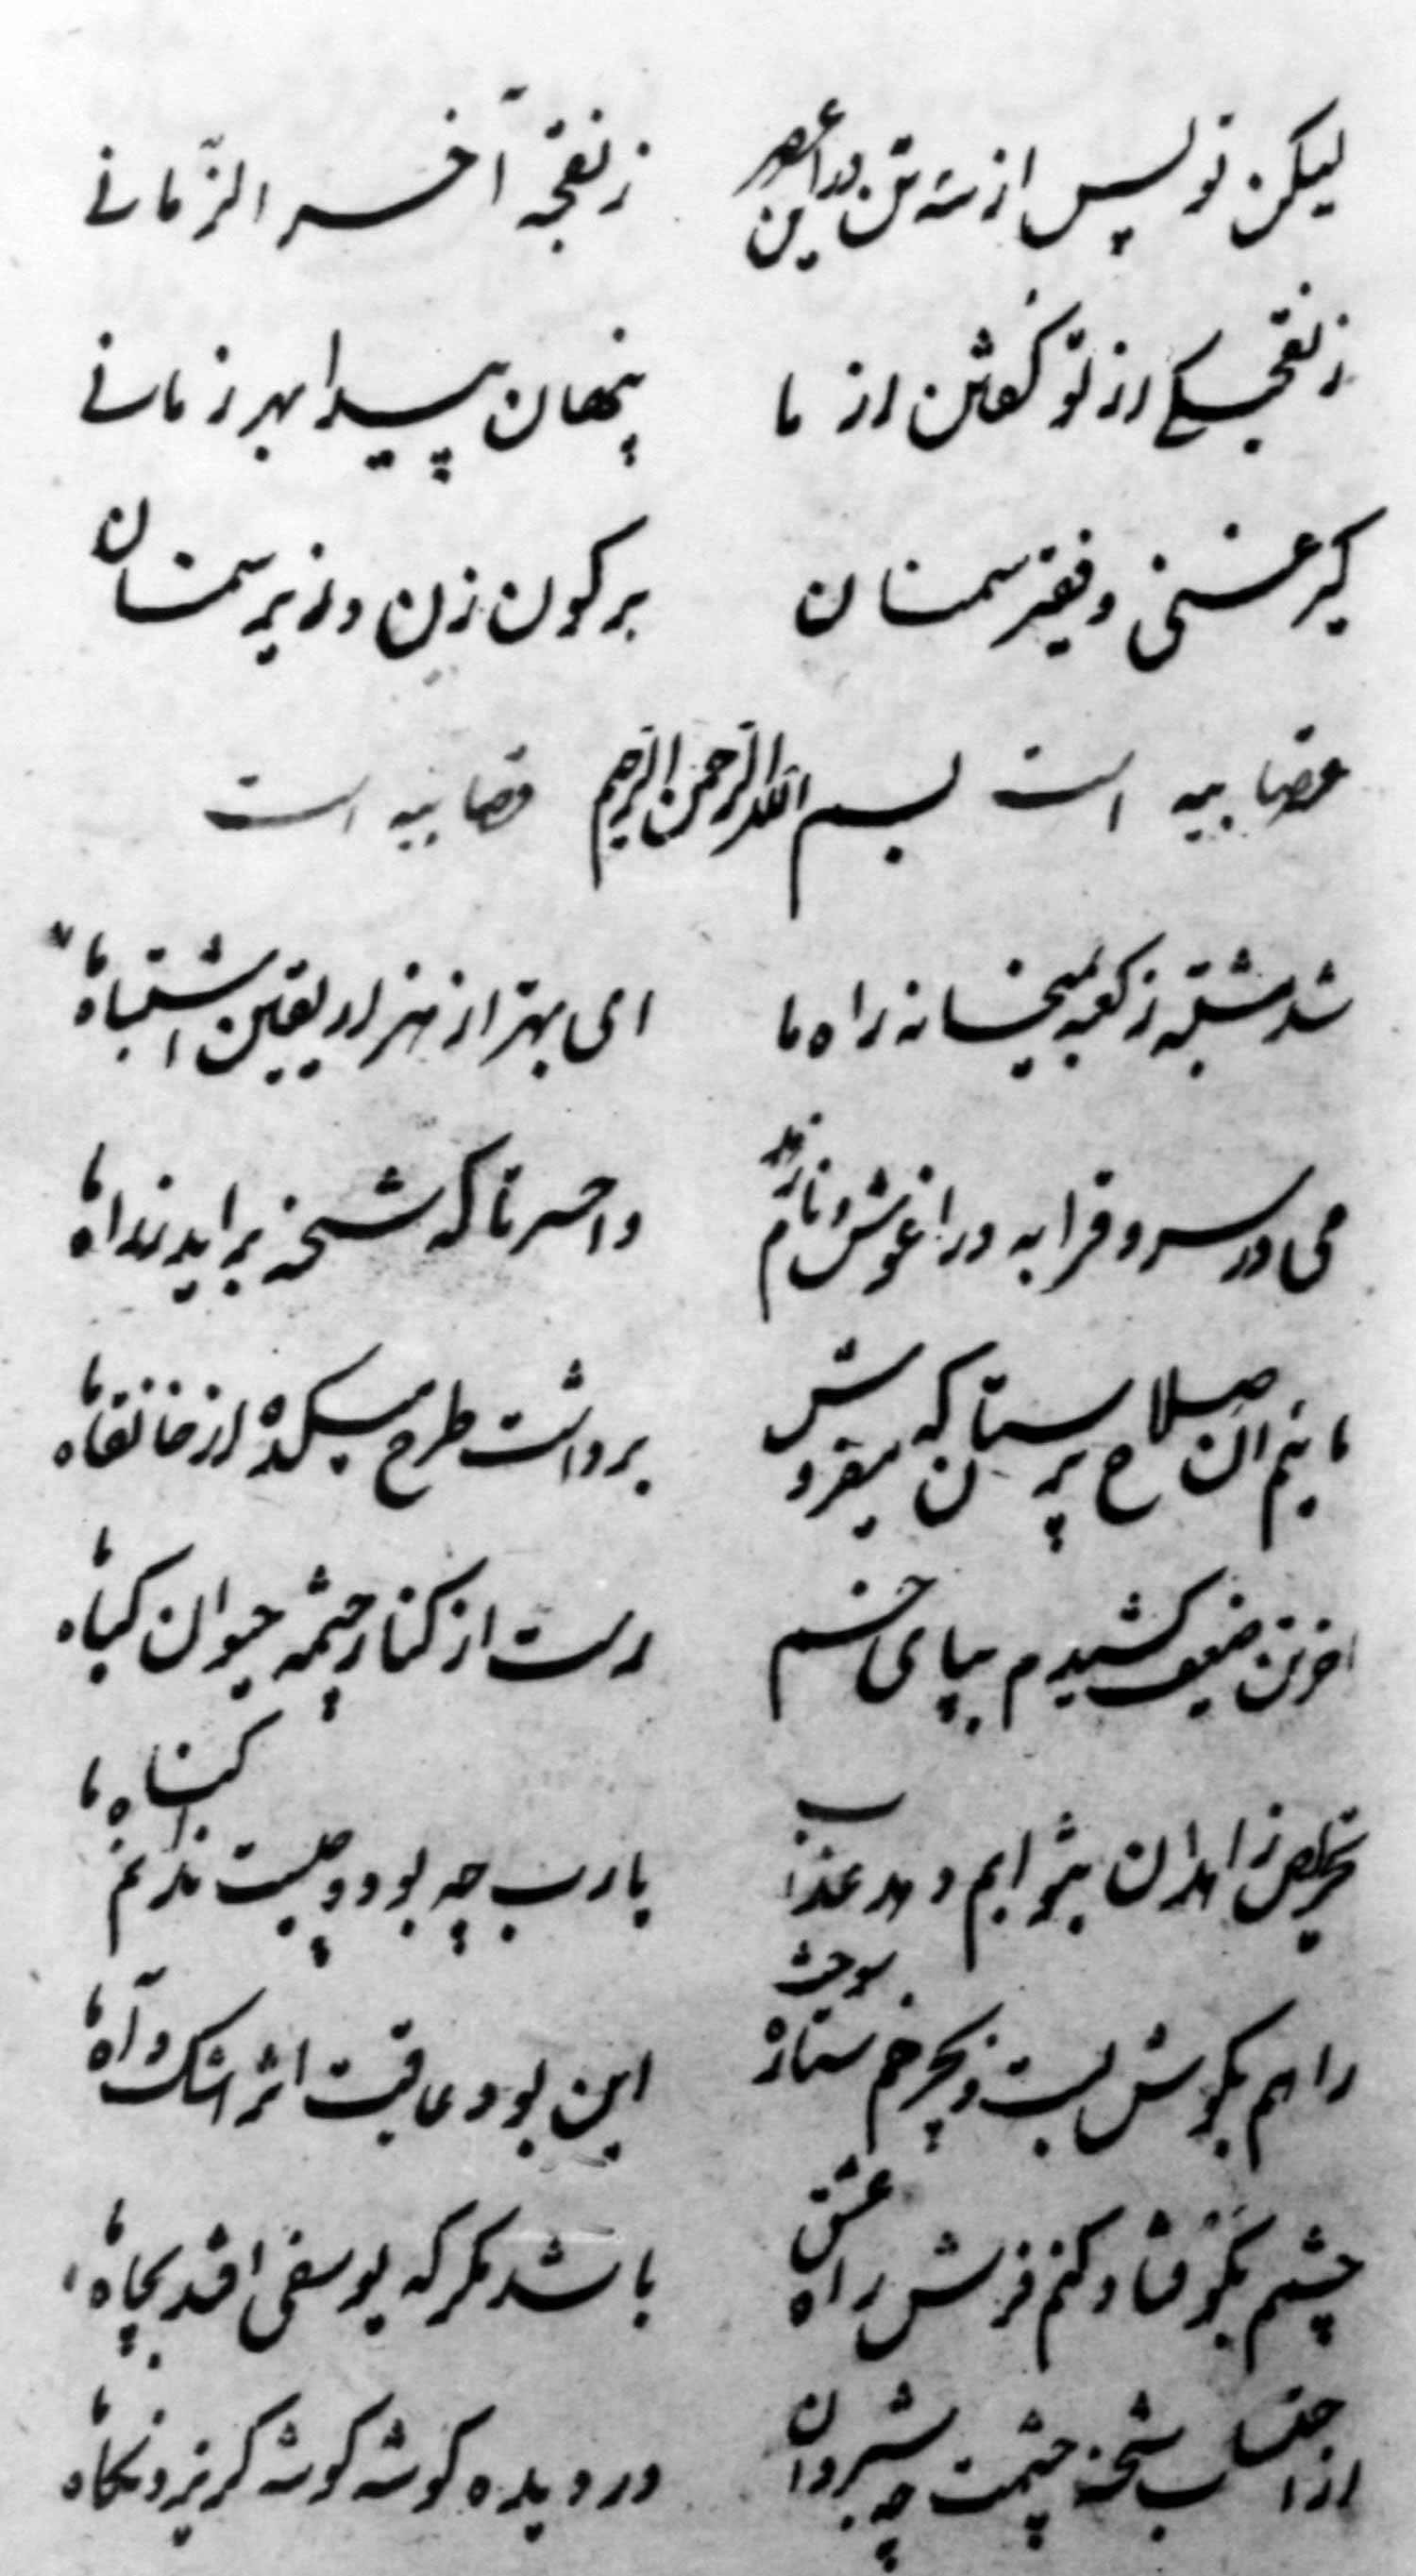 لیکن تو پس از سه تن درین عصر زنقحبه آخر الزمانی
زنقحبکی از تو گفتن از ما پنهان پیدا بهر زمانی
کیر غنی و فقیر سمنان بر کون زن وزیر سمنان
است بسم الله الرحمن الرحیم قصابیه است
شد مشتبه ز کعبه بمیخانه راه ما ای بهتر از هزار یقین اشتباه ما
می در سر و قرابه در آغوش و نام زهد واحسرتا که شحنه برآید ز راه ما
مائیم آن صلاح پرستان که میفروش برداشت طرح میکده از خانقاه ما
آخر تن ضعیف کشیدم بپای خم رست از کنار چشمه حیوان گیاه ما
تحریص زاهدان بثوابم دهد عذاب یارب چه بود و چیست ندانم گناه ما
راهم بکویش بست و بچرخم ستاره سوخت این بود عاقبت اثر اشک و آه ما
چشم نکو فشاد کنم فرش راه عشق باشد مگر که یوسفی افتد بچاه ما
از احتساب شحنه چشمت چه شبروان در دیده گوشه گوشه گریزد نگاه ما